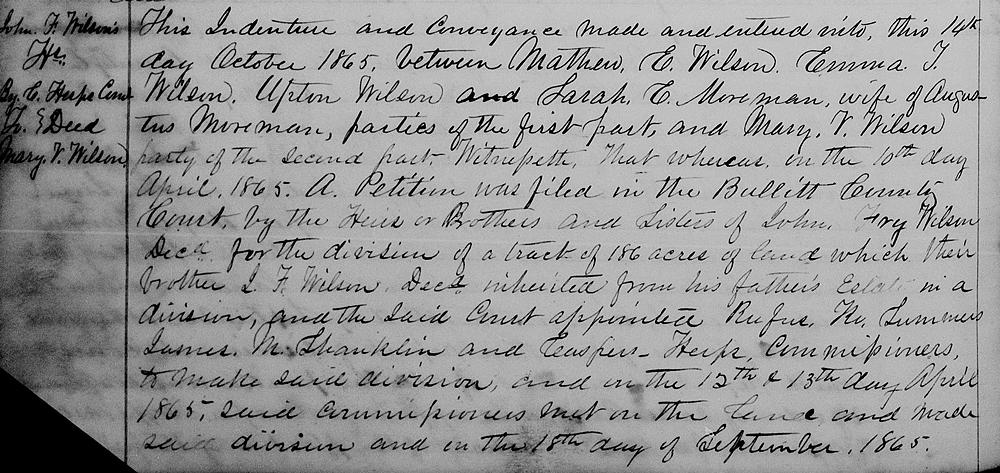 John. F. Wilson's
Hs.
By. C. Hesps Com
To. } Deed
Mary. V. Wilson
This Indenture and Conveyance made and entered into, this 14th
day October 1865, between Mathew. E. Wilson. Emma. T.
Wilson. Upton Wilson and Sarah. E. Moreman, wife of Augus-
tus Moreman, parties of the first part, and Mary. V. Wilson
party of the second part. Witnesseth. That whereas, on the 10th day
April. 1865. A. Petition was filed in the Bullitt County
Court, by the Heirs or Brothers and Sisters of John. Fry Wilson
Decd. for the division of a tract of 186 acres of land which their
brother J. F. Wilson. Decd inherited from his father's Estate in a
division, and the said Court appointed Rufus. K. Summers
James. M. Shanklin and Caspers Hesps, Commissioners,
to make said division, and on the 12th & 13th day April
1865, said Commissioners met on the land and made
said division and on the 18th day of September, 1865.